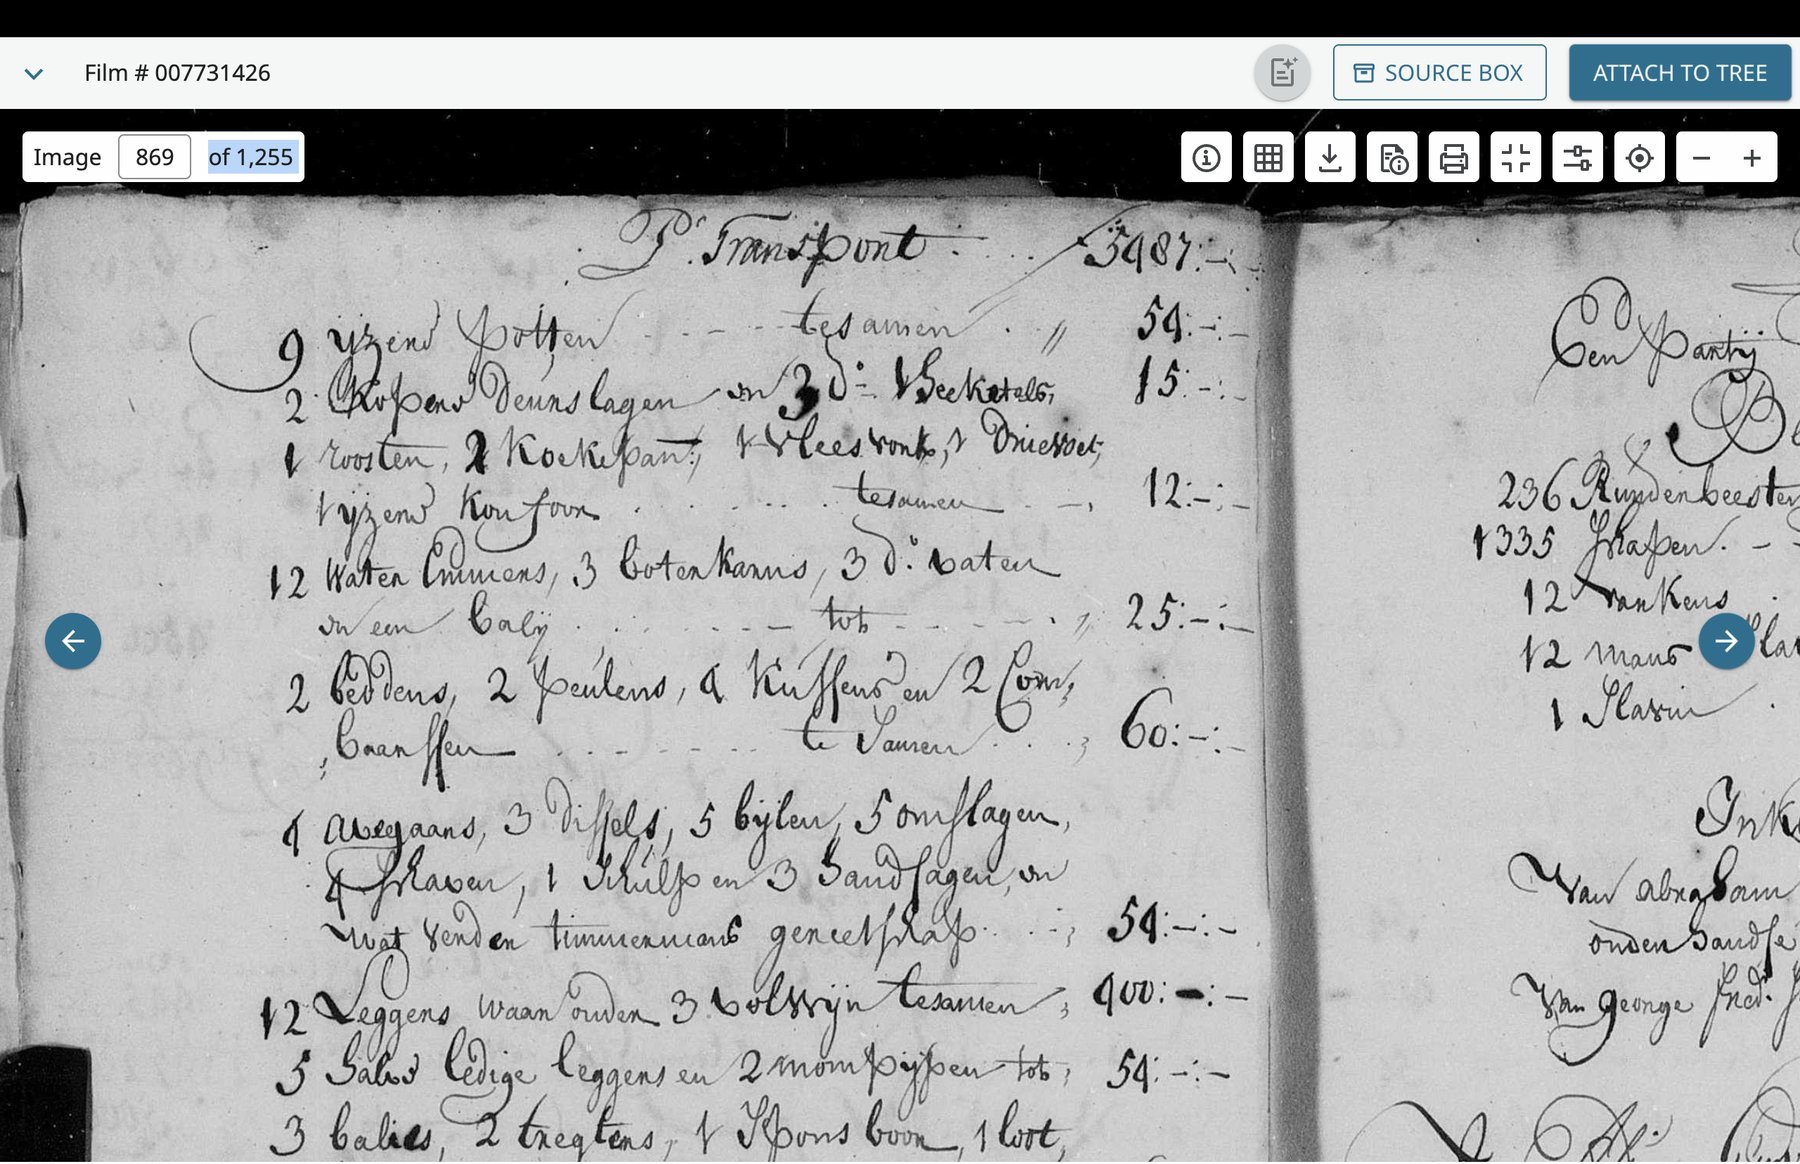 Film # 007731426
SOURCE BOX
ATTACH TO TREE
Image 869 of 1,255
Pr. Transport . . . . 5487:-:-
9 ijzend potten - - - - tesamen . " 54:-:-
2 Kopend deurslagen en 3 do= theeketels, 15:-:-
1 rooster, 2 Koekepan:, 1 vleesvork, 1 drievoet,
1 ijzend Konfoor . . . . . tesamen . -, 12:-:-
12 Water Emmers, 3 boterkarns, 3 do: vaten
en een baly . . . . . tot - - - - . " 25:-:-
2 beddens, 2 peulens, 4 Kussens en 2 Com,
,baarssen - - - - - te Samen . . . , 60:-:-
4 avegaars, 3 dissels, 5 bijlen, 5 omslagen,
4 schaven, 1 Schulp en 3 handsagen, en
wat verder timmermans gereetschap . . . -; 54:-:-
12 Leggers waar onder 3 vol wijn tesamen ; 400:-:-
5 halve ledige leggers en 2 mompijpen tot ; 54:-:-
3 balies, 2 tregters, 1 Spons boor, 1 loot,
Een Partij
236 Runderbeesten
1335 Schapen. - -
12 varkens
12 mans Sla
1 Slavin .
Ink
Van abraham
ouden handse
Van george fred: